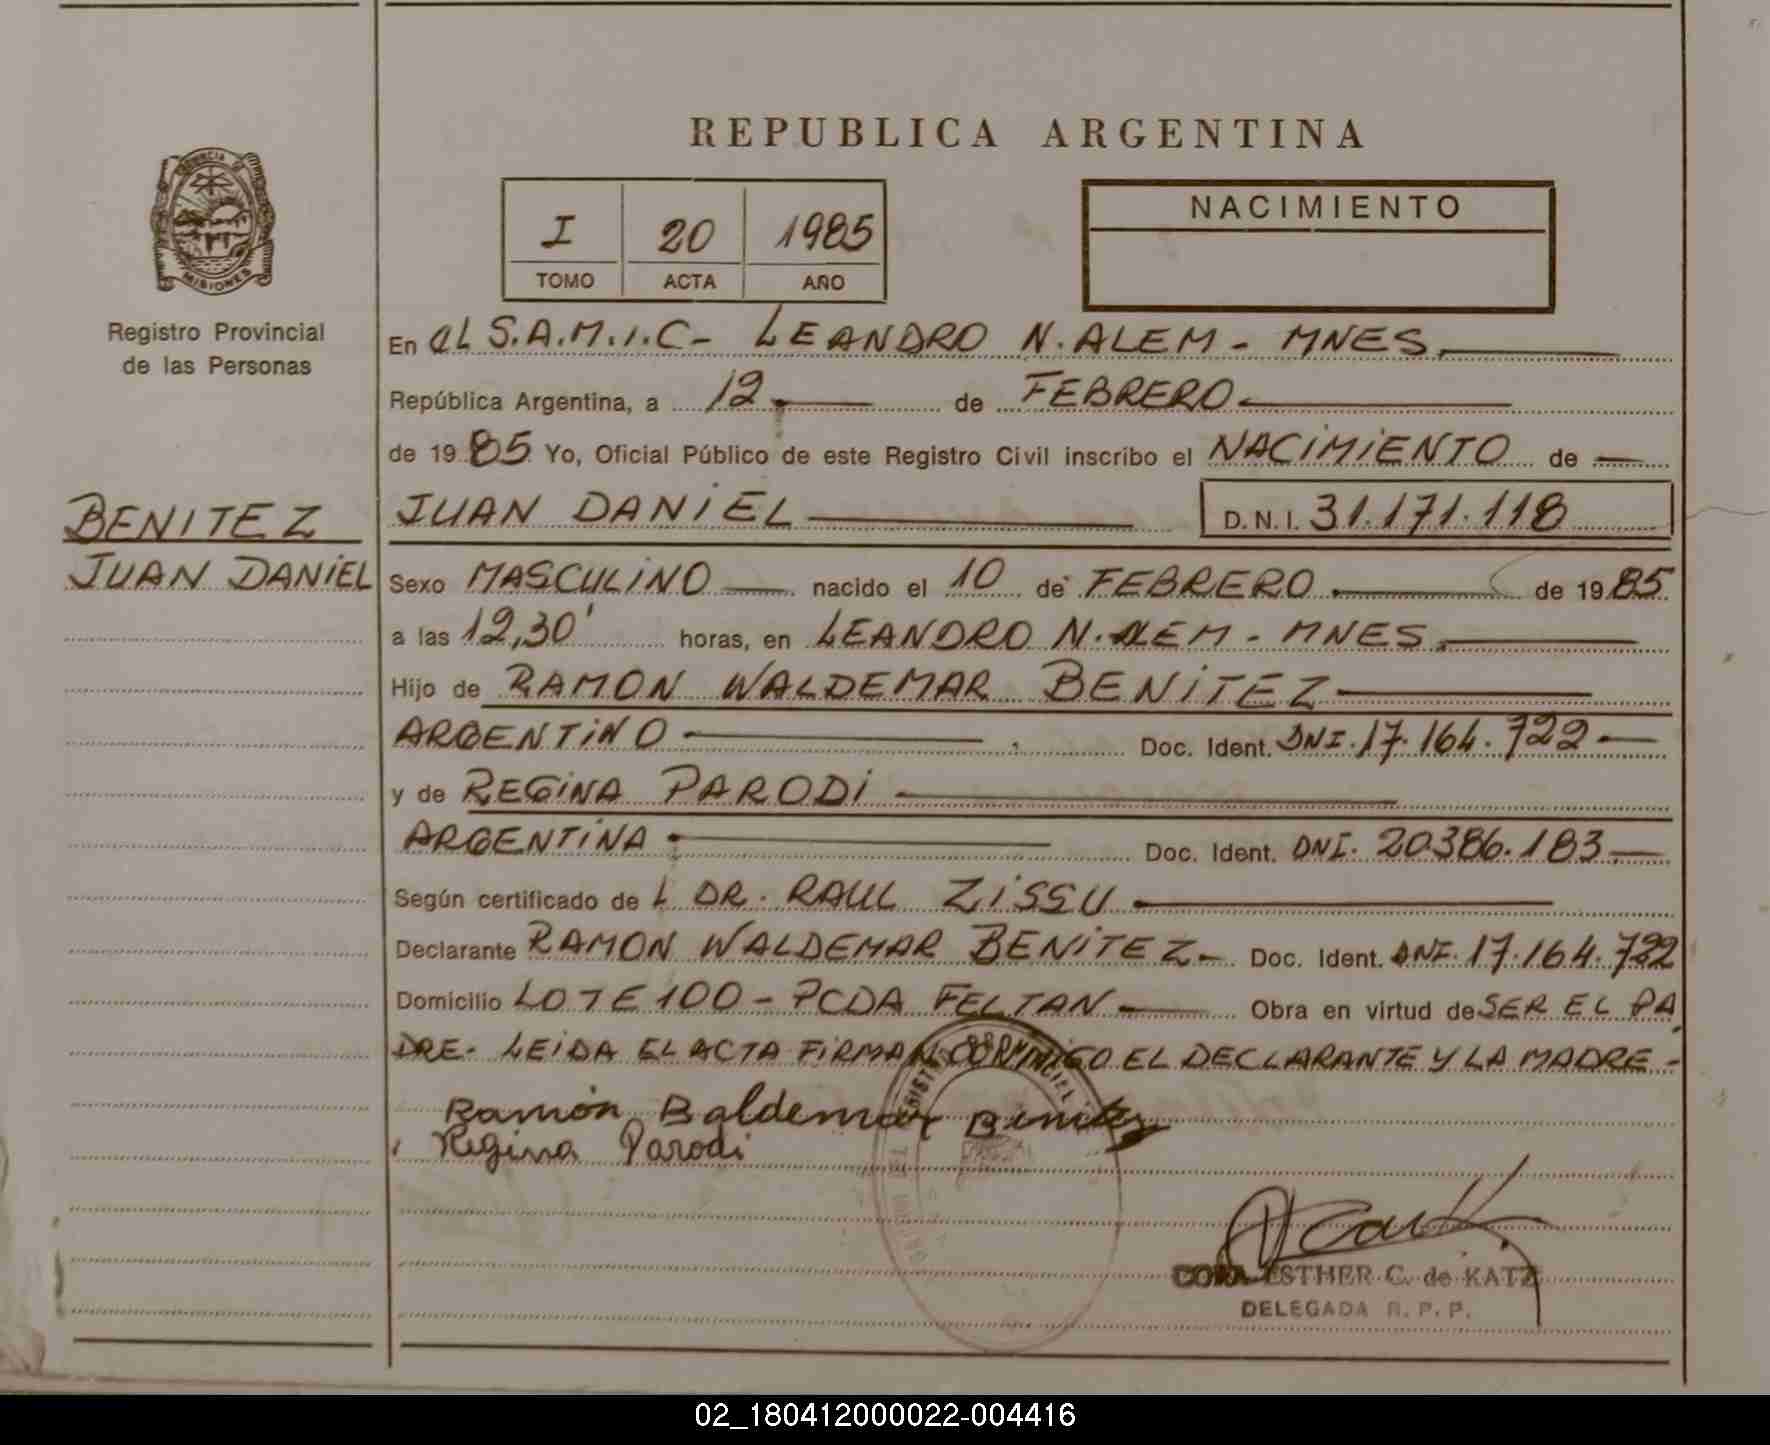 REPUBLICA ARGENTINA
I 20 1985
TOMO ACTA AÑO
NACIMIENTO
PROVINCIA DE
MISIONES
Registro Provincial
de las Personas
BENITEZ
JUAN DANIEL
En el S.A.M.I.C- LEANDRO N. ALEM - MNES.
República Argentina, a 12 de FEBRERO
de 1985 Yo, Oficial Público de este Registro Civil inscribo el NACIMIENTO de
JUAN DANIEL D.N.I. 31.171.118
Sexo MASCULINO nacido el 10 de FEBRERO de 1985
a las 12,30' horas, en LEANDRO N. ALEM - MNES.
Hijo de RAMON WALDEMAR BENITEZ
ARGENTINO Doc. Ident. DNI. 17.164.722
y de REGINA PARODI
ARGENTINA Doc. Ident. DNI. 20.386.183
Según certificado de L DR. RAUL ZISSU
Declarante RAMON WALDEMAR BENITEZ - Doc. Ident. DNI. 17.164.722
Domicilio LOTE 100 - PCDA FELTAN Obra en virtud de SER EL PA
DRE- LEIDA EL ACTA FIRMAN CONMIGO EL DECLARANTE Y LA MADRE -
Ramón Baldemar Benitez
Regina Parodi
CORA ESTHER C. de KATZ
DELEGADA R. P. P.
02_180412000022-004416